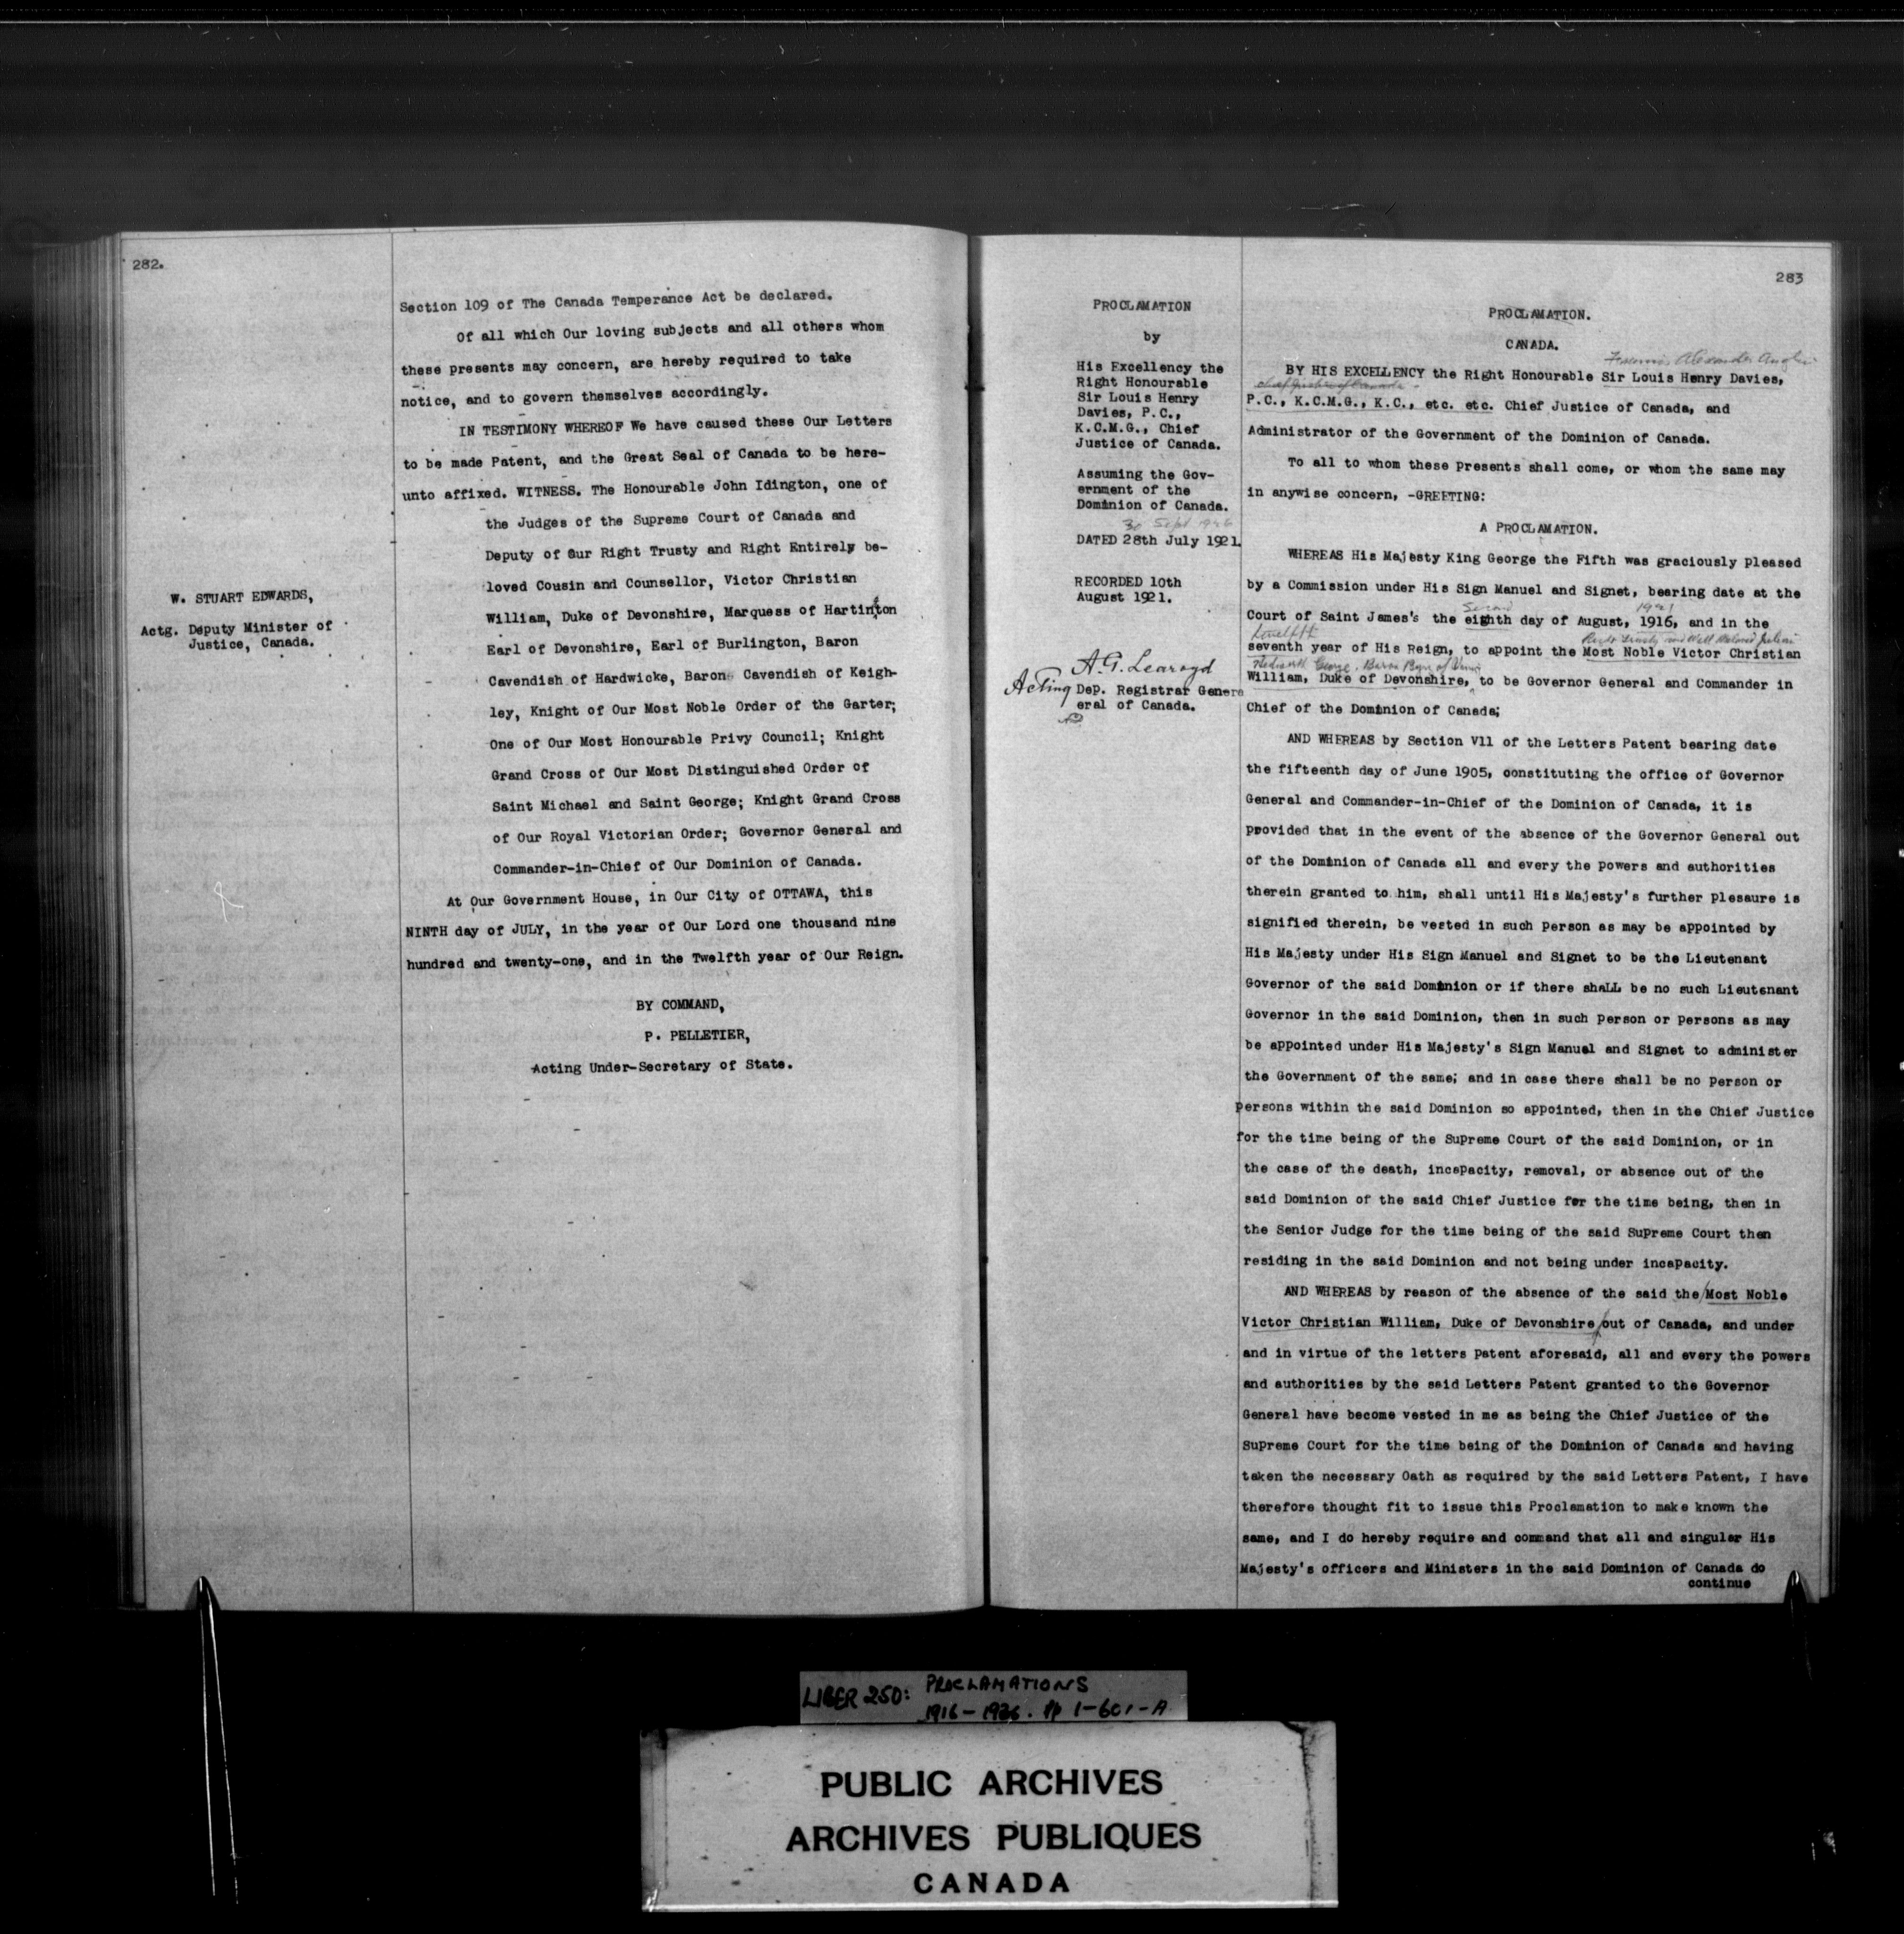 282.
Section 109 of The Canada Temperance Act be declared.
Of all which Our loving subjects and all others whom
these presents may concern, are hereby required to take
notice, and to govern themselves accordingly.
IN TESTIMONY WHEREOF We have caused these Our Letters
to be made Patent, and the Great Seal of Canada to be here-
unto affixed. WITNESS. The Honourable John Idington, one of
the Judges of the Supreme Court of Canada and
Deputy of Our Right Trusty and Right Entirely be-
loved Cousin and Counsellor, Victor Christian
William, Duke of Devonshire, Marquess of Hartington
Earl of Devonshire, Earl of Burlington, Baron
Cavendish of Hardwicke, Baron Cavendish of Keigh-
ley, Knight of Our Most Noble Order of the Garter;
One of Our Most Honourable Privy Council; Knight
Grand Cross of Our Most Distinguished Order of
Saint Michael and Saint George; Knight Grand Cross
of Our Royal Victorian Order; Governor General and
Commander-in-Chief of Our Dominion of Canada.
At Our Government House, in Our City of OTTAWA, this
NINTH day of JULY, in the year of Our Lord one thousand nine
hundred and twenty-one, and in the Twelfth year of Our Reign.
BY COMMAND,
P. PELLETIER,
Acting Under-Secretary of State.
W. STUART EDWARDS,
Actg. Deputy Minister of
Justice, Canada.
283
PROCLAMATION
by
His Excellency the
Right Honourable
Sir Louis Henry
Davies, P.C.,
K.C.M.G., Chief
Justice of Canada.
Assuming the Gov-
ernment of the
Dominion of Canada.
30 Sept 1926
DATED 28th July 1921.
RECORDED 10th
August 1921.
A.G. Learoyd
Acting Dep. Registrar Genere
eral of Canada.
PROCLAMATION.
CANADA.
Francis Alexander Anglin
BY HIS EXCELLENCY the Right Honourable Sir Louis Henry Davies,
Chief Justice of Canada
P.C., K.C.M.G., K.C., etc. etc. Chief Justice of Canada, and
Administrator of the Government of the Dominion of Canada.
To all to whom these Presents shall come, or whom the same may
in anywise concern, -GREETING:
A PROCLAMATION.
WHEREAS His Majesty King George the Fifth was graciously pleased
by a Commission under His Sign Manuel and Signet, bearing date at the
Second 1921
Court of Saint James's the eighth day of August, 1916, and in the
twelfth Right Trusty and Well Beloved Julian
seventh year of His Reign, to appoint the Most Noble Victor Christian
Hedworth George, Baron Byng of Vimy
William, Duke of Devonshire, to be Governor General and Commander in
Chief of the Dominion of Canada;
AND WHEREAS by Section V11 of the Letters Patent bearing date
the fifteenth day of June 1905, constituting the office of Governor
General and Commander-in-Chief of the Dominion of Canada, it is
provided that in the event of the absence of the Governor General out
of the Dominion of Canada all and every the powers and authorities
therein granted to him, shall until His Majesty's further plesaure is
signified therein, be vested in such person as may be appointed by
His Majesty under His Sign Manuel and Signet to be the Lieutenant
Governor of the said Dominion or if there shaLL be no such Lieutenant
Governor in the said Dominion, then in such person or persons as may
be appointed under His Majesty's Sign Manual and Signet to administer
the Government of the same; and in case there shall be no person or
persons within the said Dominion so appointed, then in the Chief Justice
for the time being of the Supreme Court of the said Dominion, or in
the case of the death, incapacity, removal, or absence out of the
said Dominion of the said Chief Justice for the time being, then in
the Senior Judge for the time being of the said Supreme Court then
residing in the said Dominion and not being under incapacity.
AND WHEREAS by reason of the absence of the said the Most Noble
Victor Christian William, Duke of Devonshire out of Canada, and under
and in virtue of the letters patent aforesaid, all and every the powers
and authorities by the said Letters Patent granted to the Governor
General have become vested in me as being the Chief Justice of the
Supreme Court for the time being of the Dominion of Canada and having
taken the necessary Oath as required by the said Letters Patent, I have
therefore thought fit to issue this Proclamation to make known the
same, and I do hereby require and command that all and singular His
Majesty's officers and Ministers in the said Dominion of Canada do
continue
LIBER 250: PROCLAMATIONS
1916-1926. pp 1-601-A
PUBLIC ARCHIVES
ARCHIVES PUBLIQUES
CANADA